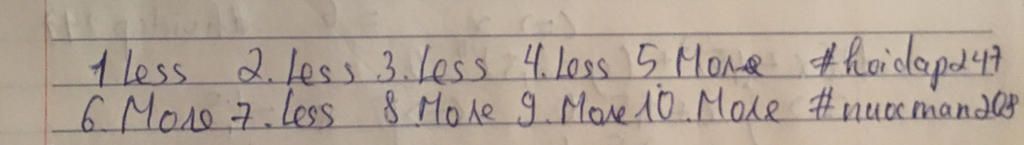 1 Less 2. Less 3. Less 4. Less 5 More #hoidap247
6. More 7. Less 8. More 9. More 10. More #nuocman208